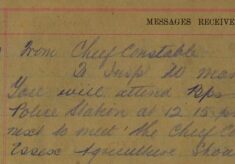 MESSAGES RECEIVE
From Chief Constable
To Insp
You will attend
Police Station at 12 15 p
next to meet the Chief Co
Essex Agriculture Show